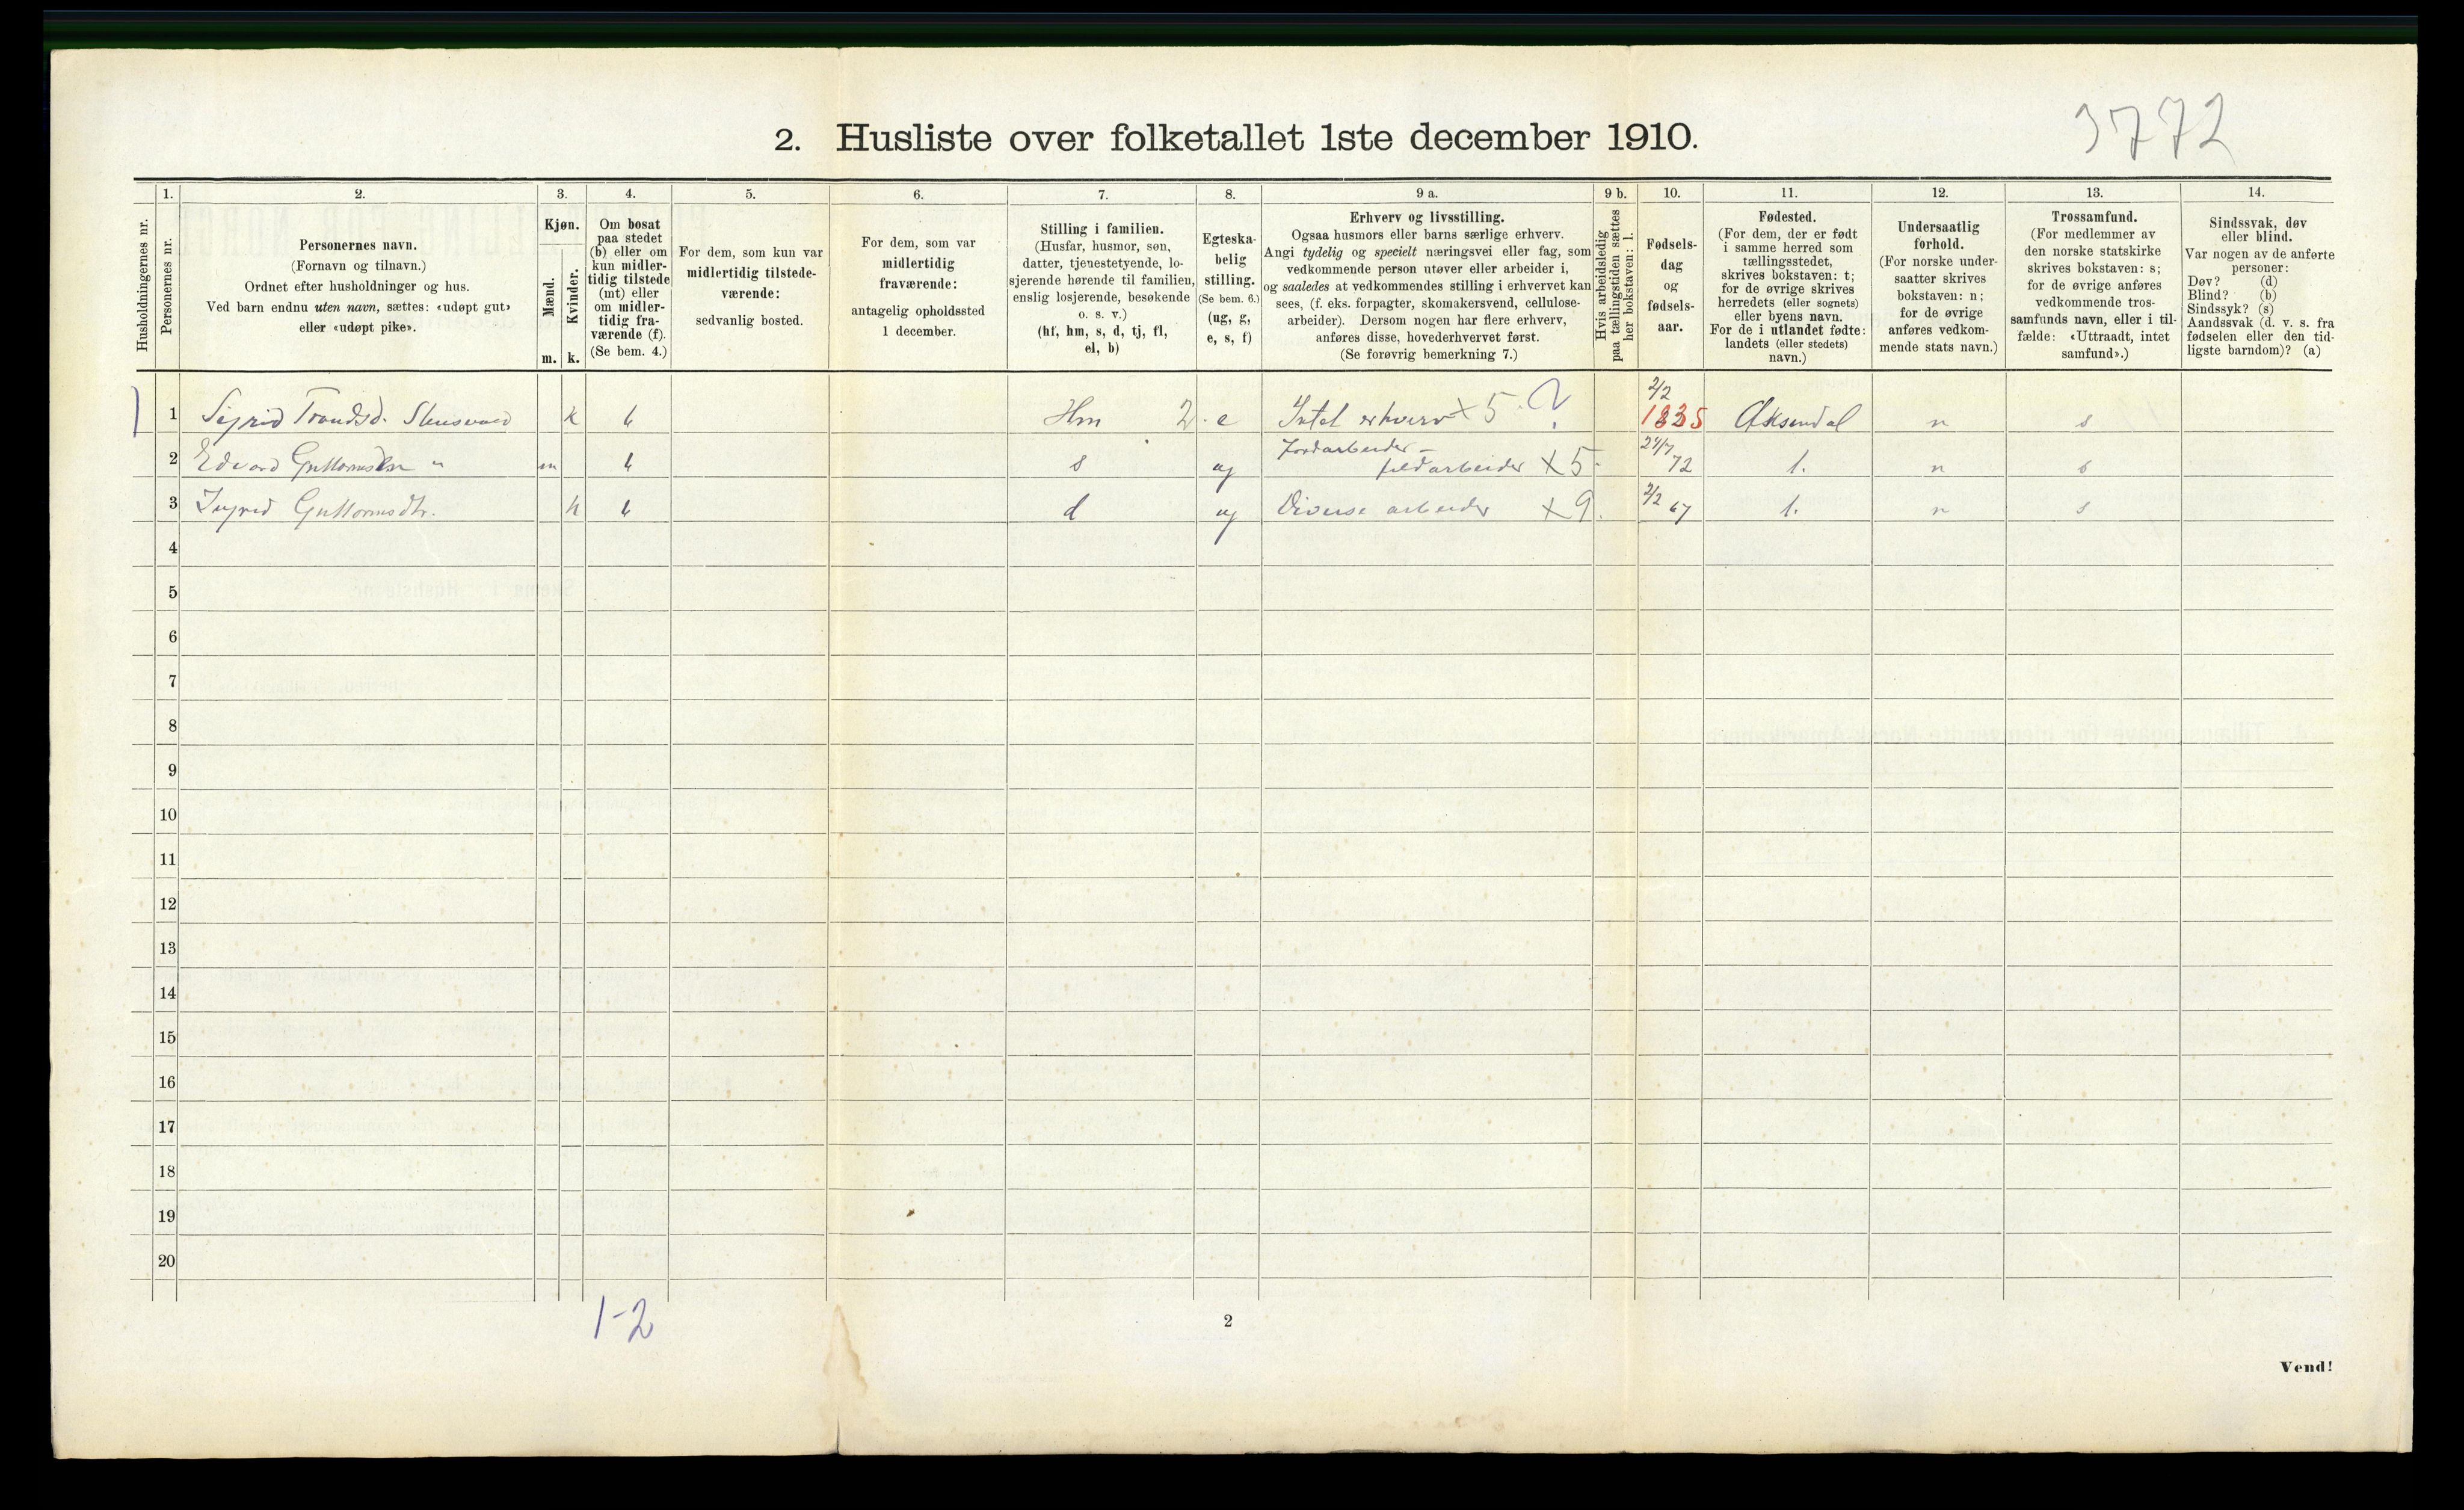 3772
2. Husliste over folketallet 1ste december 1910.
Husholdningernes nr.
1.
Personernes nr.
2.
Personernes navn.
(Fornavn og tilnavn.)
Ordnet efter husholdninger og hus.
Ved barn endnu uten navn, sættes: «udøpt gut»
eller «udøpt pike».
3.
Kjøn.
Mænd.
m.
Kvinder.
k.
4.
Om bosat
paa stedet
(b) eller om
kun midler-
tidig tilstede
(mt) eller
om midler-
tidig fra-
værende (f).
(Se bem. 4.)
5.
For dem, som kun var
midlertidig tilstede-
værende:
sedvanlig bosted.
6.
For dem, som var
midlertidig
fraværende:
antagelig opholdssted
1 december.
7.
Stilling i familien.
(Husfar, husmor, søn,
datter, tjenestetyende, lo-
sjerende hørende til familien,
enslig losjerende, besøkende
o. s. v.)
(hf, hm, s, d, tj, fl,
el, b)
8.
Egteska-
belig
stilling.
(Se bem. 6.)
(ug, g,
e, s, f)
9 a.
Erhverv og livsstilling.
Ogsaa husmors eller barns særlige erhverv.
Angi tydelig og specielt næringsvei eller fag, som
vedkommende person utøver eller arbeider i,
og saaledes at vedkommendes stilling i erhvervet kan
sees, (f. eks. forpagter, skomakersvend, cellulose-
arbeider). Dersom nogen har flere erhverv,
anføres disse, hovederhvervet først.
(Se forøvrig bemerkning 7.)
9 b.
Hvis arbeidsledig
paa tællingstiden sættes
her bokstaven: l.
10.
Fødsels-
dag
og
fødsels-
aar.
11.
Fødested.
(For dem, der er født
i samme herred som
tællingsstedet,
skrives bokstaven: t;
for de øvrige skrives
herredets (eller sognets)
eller byens navn.
For de i utlandet fødte:
landets (eller stedets)
navn.)
12.
Undersaatlig
forhold.
(For norske under-
saatter skrives
bokstaven: n;
for de øvrige
anføres vedkom-
mende stats navn.)
13.
Trossamfund.
(For medlemmer av
den norske statskirke
skrives bokstaven: s;
for de øvrige anføres
vedkommende tros-
samfunds navn, eller i til-
fælde: «Uttraadt, intet
samfund».)
14.
Sindssvak, døv
eller blind.
Var nogen av de anførte
personer:
Døv? (d)
Blind? (b)
Sindssyk? (s)
Aandssvak (d. v. s. fra
fødselen eller den tid-
ligste barndom)? (a)
1 Sigrid Trondsd. k b Hm 2 e Intet erhverv x 5 ? 2/2 1835 n s
2 Edvard Guttormsen " m b s ug Jordarbeider - x 5 24/7 72 t. n s
3 Ingrid Guttormsdtr. k b d ug Diverse arbeider x 9 2/2 67 t. n s
4
5
6
7
8
9
10
11
12
13
14
15
16
17
18
19
20
1-2
2
Vend!